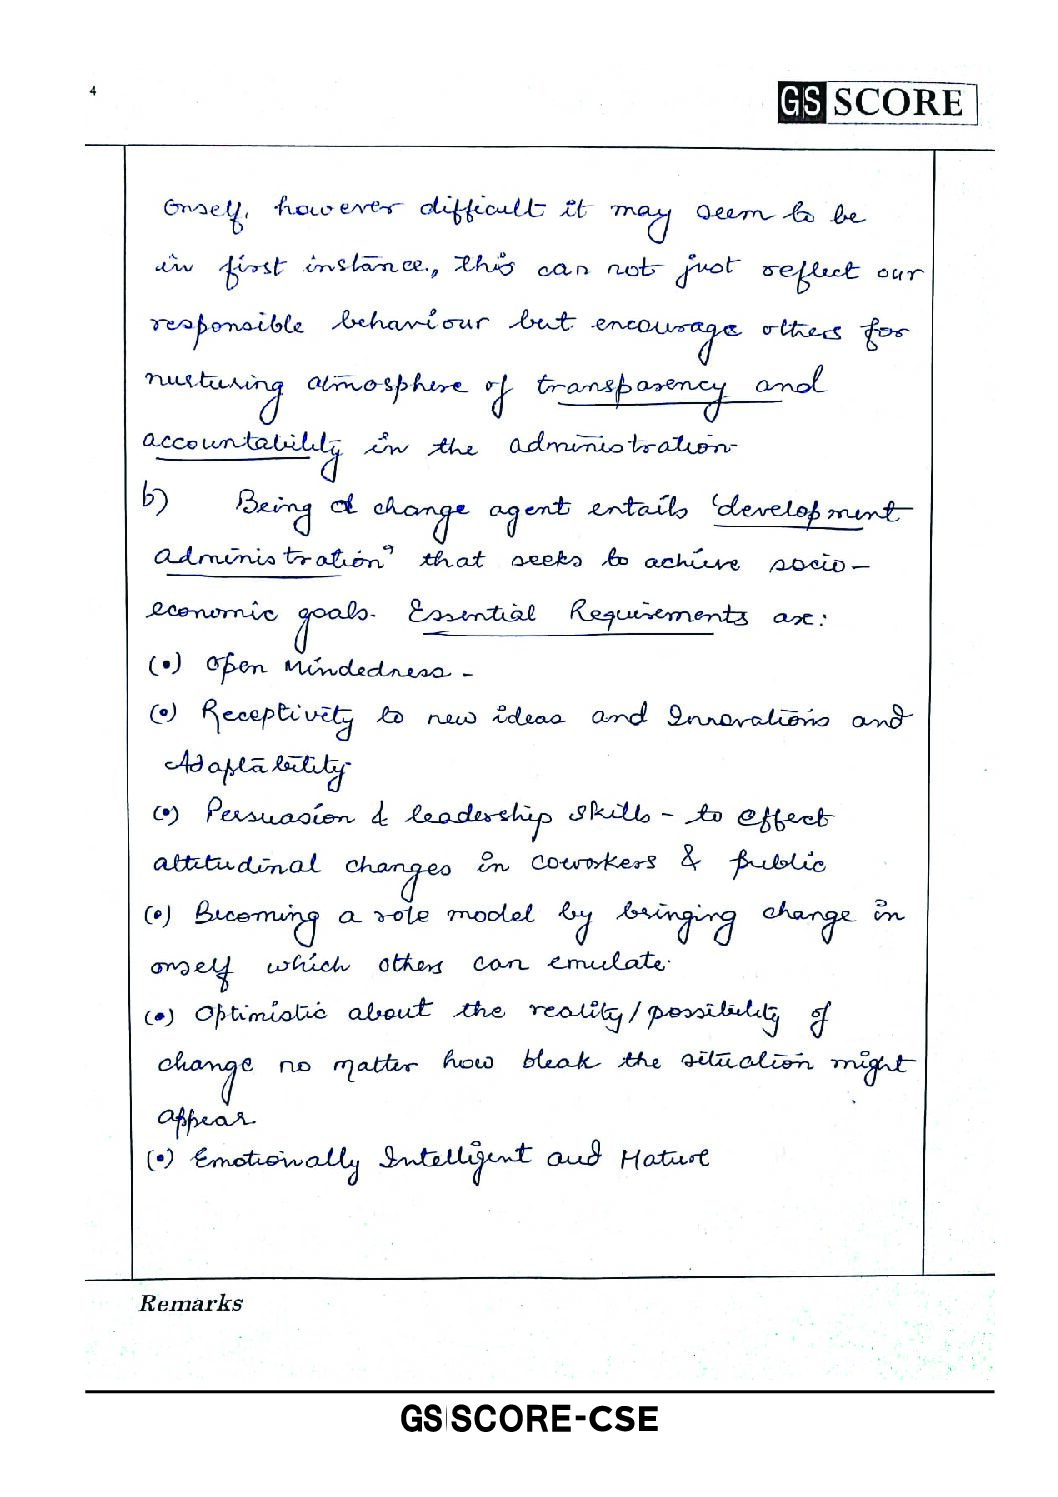 4
GS SCORE
Onself, however difficult it may seem to be
in first instance., this can not just reflect our
responsible behaviour but encourage others for
nurturing atmosphere of transparency and
accountability in the administration
b) Being a change agent entails 'development
administration' that seeks to achieve socio-
economic goals. Essential Requirements are:
(•) Open Mindedness -
(•) Receptivity to new ideas and Innovations and
Adaptability
(•) Persuasion & leadership skills - to effect
attitudinal changes in coworkers & public
(•) Becoming a role model by bringing change in
onself which others can emulate.
(•) Optimistic about the reality/possibility of
change no matter how bleak the situation might
appear.
(•) Emotionally Intelligent and Mature
Remarks
GS SCORE-CSE